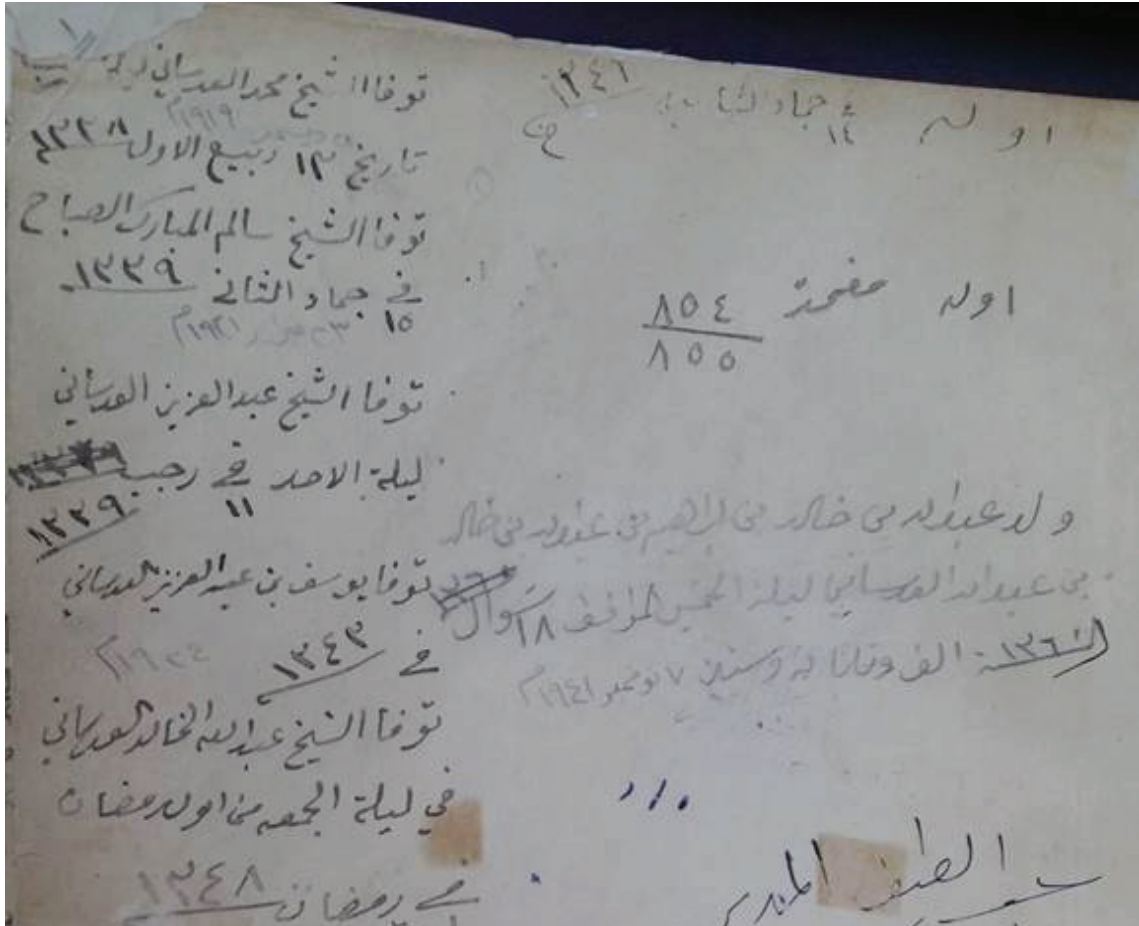 اوله ١٤ جماد الثانيه ١٣٤١
اوله صفحة ٨٥٤
٨٥٥
ولد عبدالله بن خالد بن ابراهيم بن عبدالله بن خالد
بن عبدالله العدساني ليلة الخميس الموافق ١٨ شوال
١٣٦٠ الف وثلاثماية وستين ٧ نوفمبر ١٩٤١م
توفا الشيخ محمد العدساني ليلة
ديسمبر ١٩١٩م
تاريخ ١٣ ربيع الاول ١٣٣٨
توفا الشيخ سالم المبارك الصباح
في ١٥ جماد الثاني ١٣٣٩
١٩٢١م
توفا الشيخ عبدالعزيز العدساني
ليلة الاحد في ١١ رجب
١٣٣٩
توفا يوسف بن عبدالعزيز العدساني
في ١٣٤٣ ١٩٢٤م
توفا الشيخ عبدالله الخالد العدساني
في ليلة الجمعه من اول رمضان
في رمضان ١٣٤٨